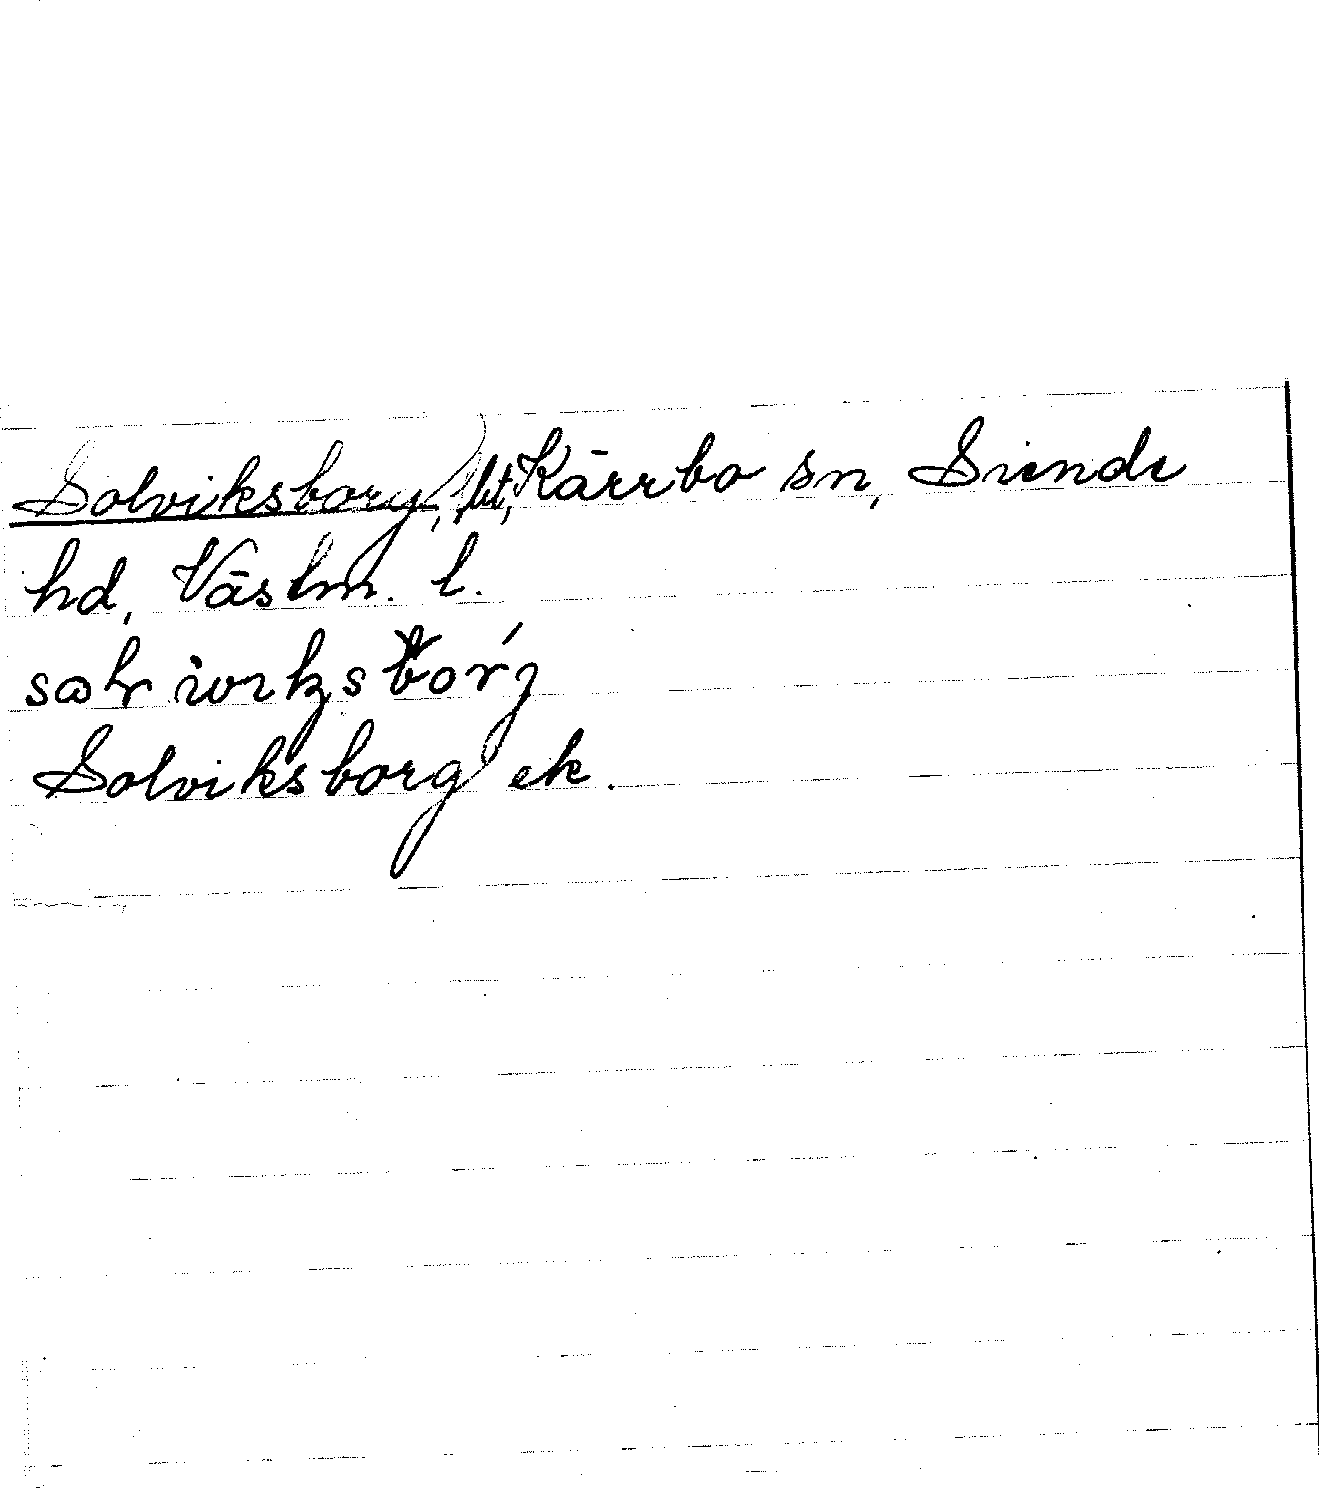 Solviksborg, , Kärrbo sn, Siende
hd, Västm. l.
Solviksborg ek.